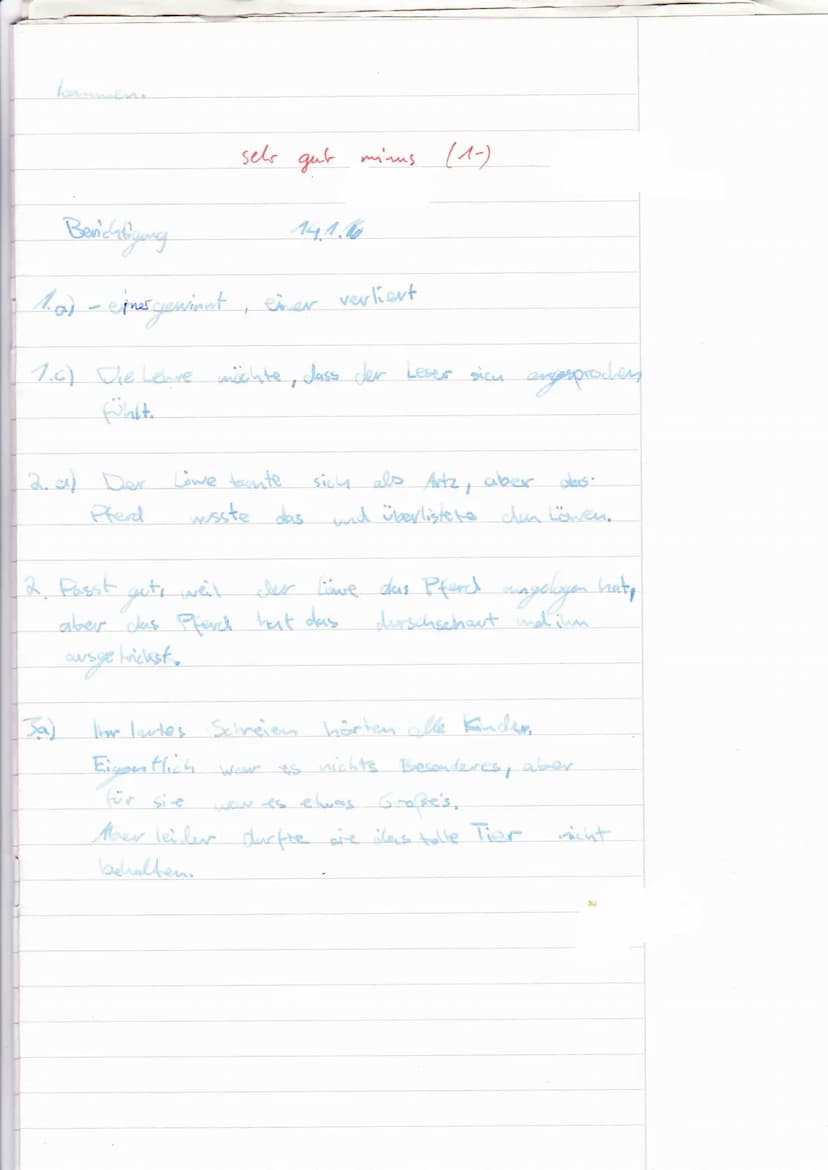 kommen.
sehr gut minus (1-)
Berichtigung 14.1.16
1.a) - einer gewinnt, einer verliert
1.c) Die Lehre möchte, dass der Leser sich angesprochen
fühlt.
2. a) Der Löwe tarnte sich als Artz, aber das
Pferd wusste das und überlistete den Löwen.
2. Passt gut, weil der Löwe das Pferd angelogen hat,
aber das Pferd hat das durschschaut und ihn
ausgetrickst.
3a) Ihr lautes Schreien hörten alle Kinder.
Eigentlich war es nichts Besonderes, aber
für sie war es etwas Großes.
Aber leider durfte sie das tolle Tier nicht
behalten.